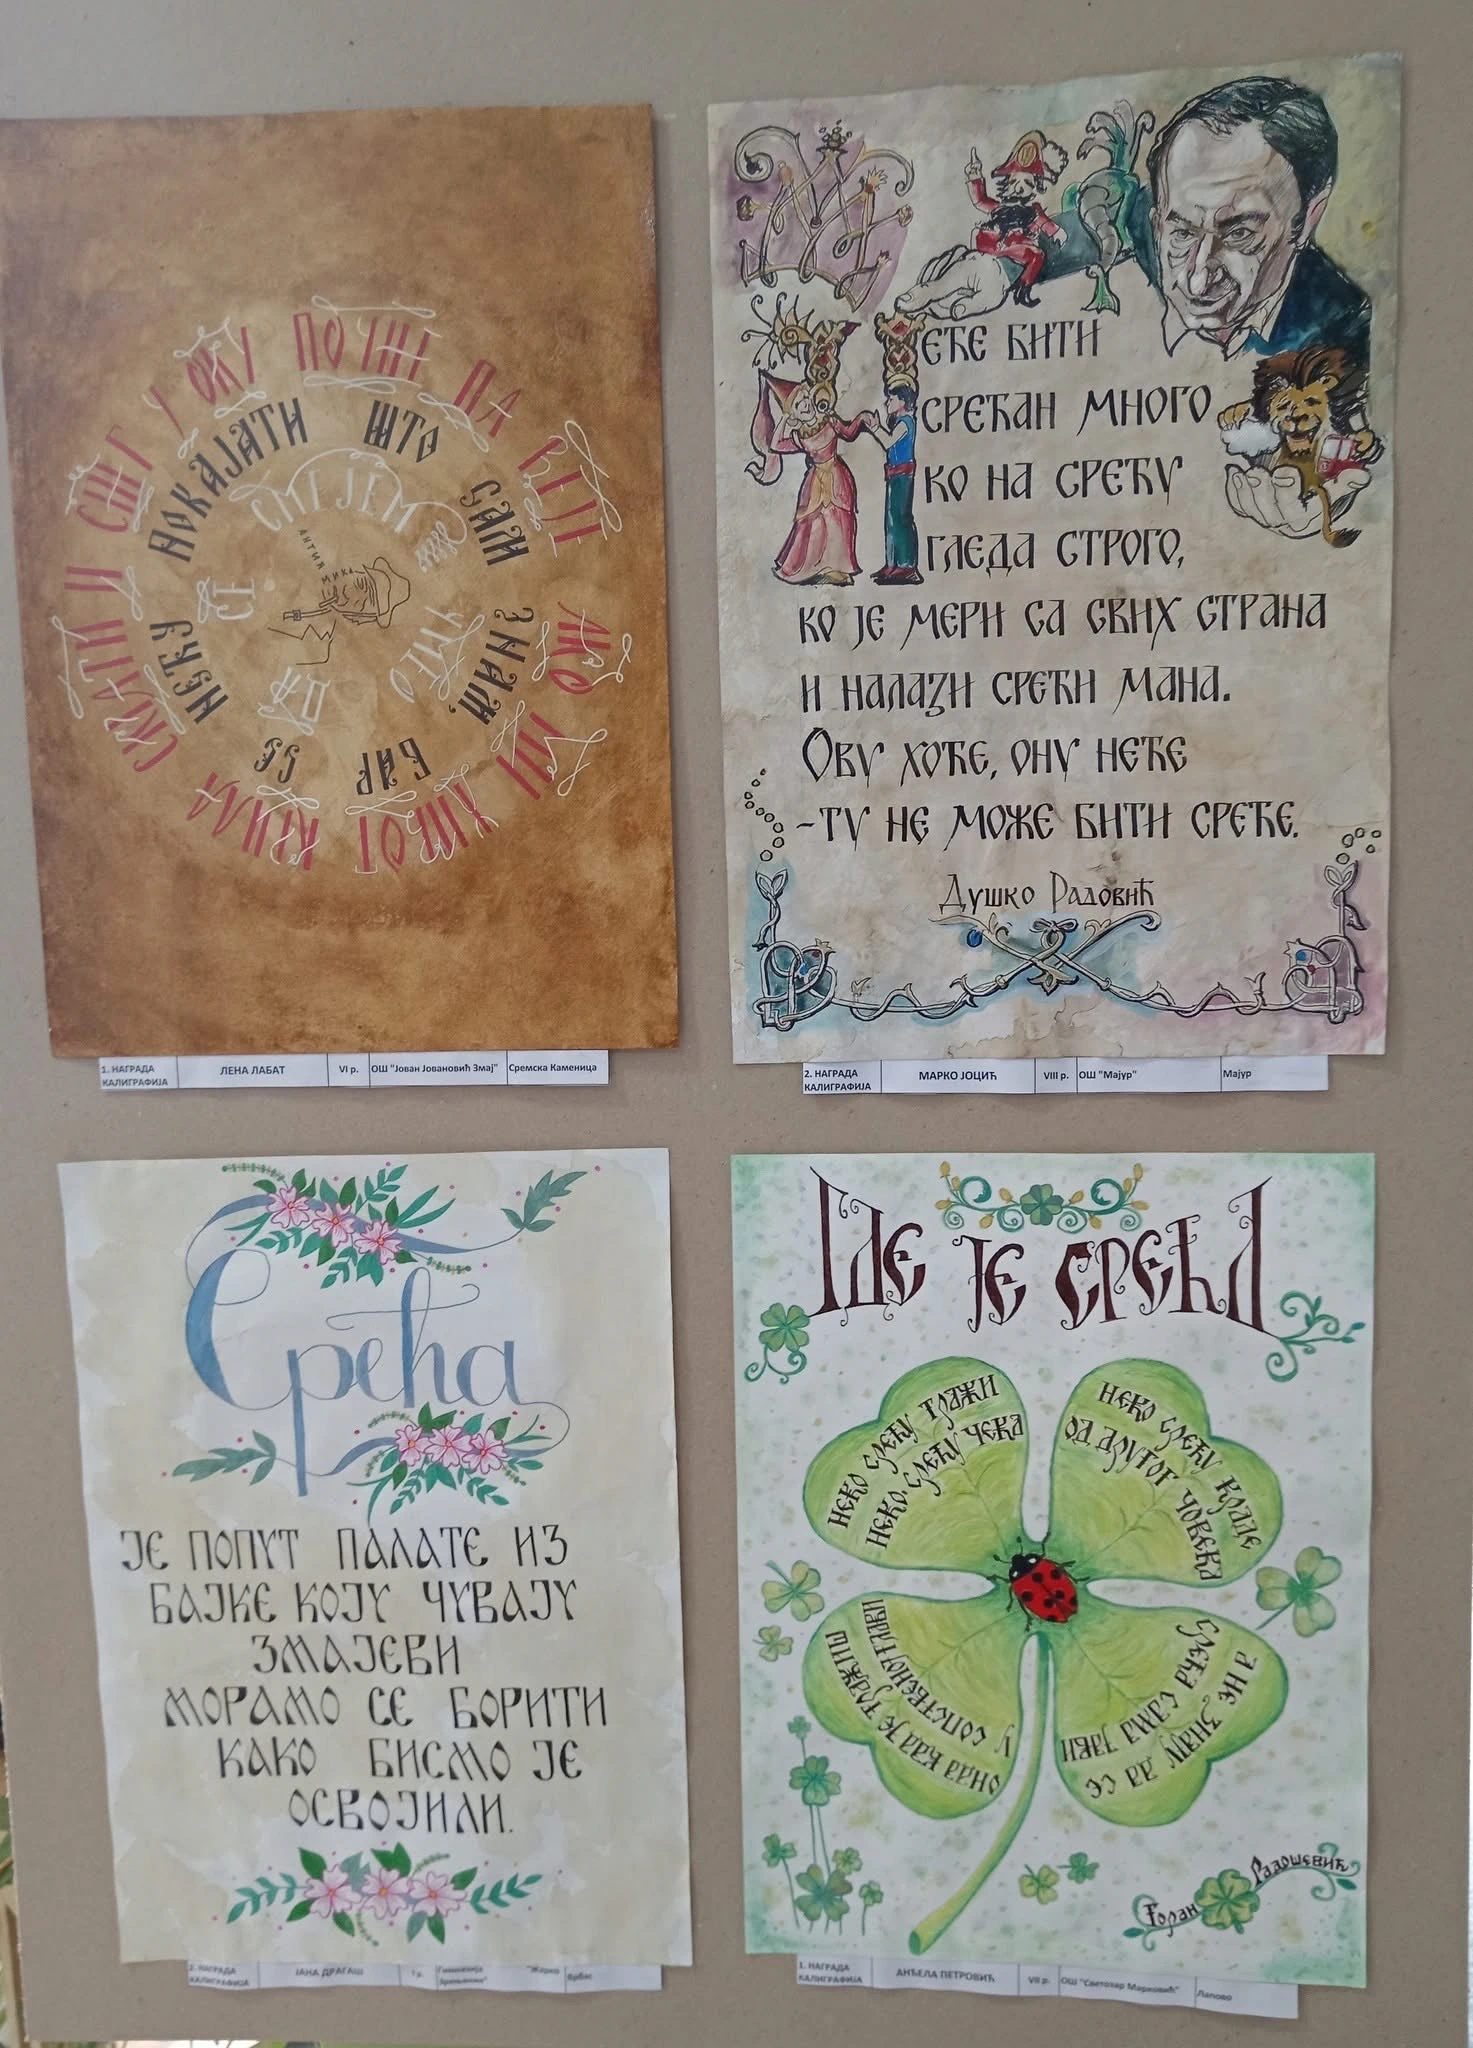 АКО МИ ЖИВОТ КРИЛА СКРАТИ И СНЕГ У ОКУ ПОЧНЕ ДА ВЕЈЕ
СЕ НЕЋУ ПОКАЈАТИ ШТО САМ ЗНАМ, БАР
УМЕО ДА СЕ СМЕЈЕМ
АНТИЋ
МИКА
1. НАГРАДА КАЛИГРАФИЈА ЛЕНА ЛАБАТ VI р. ОШ "Јован Јовановић Змај" Сремска Каменица
НЕЋЕ БИТИ
СРЕЋАН МНОГО
КО НА СРЕЋУ
ГЛЕДА СТРОГО,
КО ЈЕ МЕРИ СА СВИХ СТРАНА
И НАЛАЗИ СРЕЋИ МАНА.
ОВУ ХОЋЕ, ОНУ НЕЋЕ
-ТУ НЕ МОЖЕ БИТИ СРЕЋЕ.
Душко Радовић
2. НАГРАДА КАЛИГРАФИЈА МАРКО ЈОЦИЋ VIII р. ОШ "Мајур" Мајур
Срећа
ЈЕ ПОПУТ ПАЛАТЕ ИЗ
БАЈКЕ КОЈУ ЧУВАЈУ
ЗМАЈЕВИ
МОРАМО СЕ БОРИТИ
КАКО БИСМО ЈЕ
ОСВОЈИЛИ.
2. НАГРАДА КАЛИГРАФИЈА ЈАНА ДРАГАШ I р. Гимназија "Жарко Зрењанин" Врбас
ГДЕ ЈЕ СРЕЋА
НЕКО СРЕЋУ ТРАЖИ
НЕКО СРЕЋУ ЧЕКА
НЕКО СРЕЋУ КРАДЕ
ОД ДРУГОГ ЧОВЕКА
А НЕ ЗНАЈУ ДА СЕ
СРЕЋА САМА ЈАВИ
ОНДА КАДА ЈЕ ТРАЖИШ
У СОПСТВЕНОЈ ГЛАВИ
Горан Радошевић
1. НАГРАДА КАЛИГРАФИЈА АНЂЕЛА ПЕТРОВИЋ VII р. ОШ "Светозар Марковић" Лапово